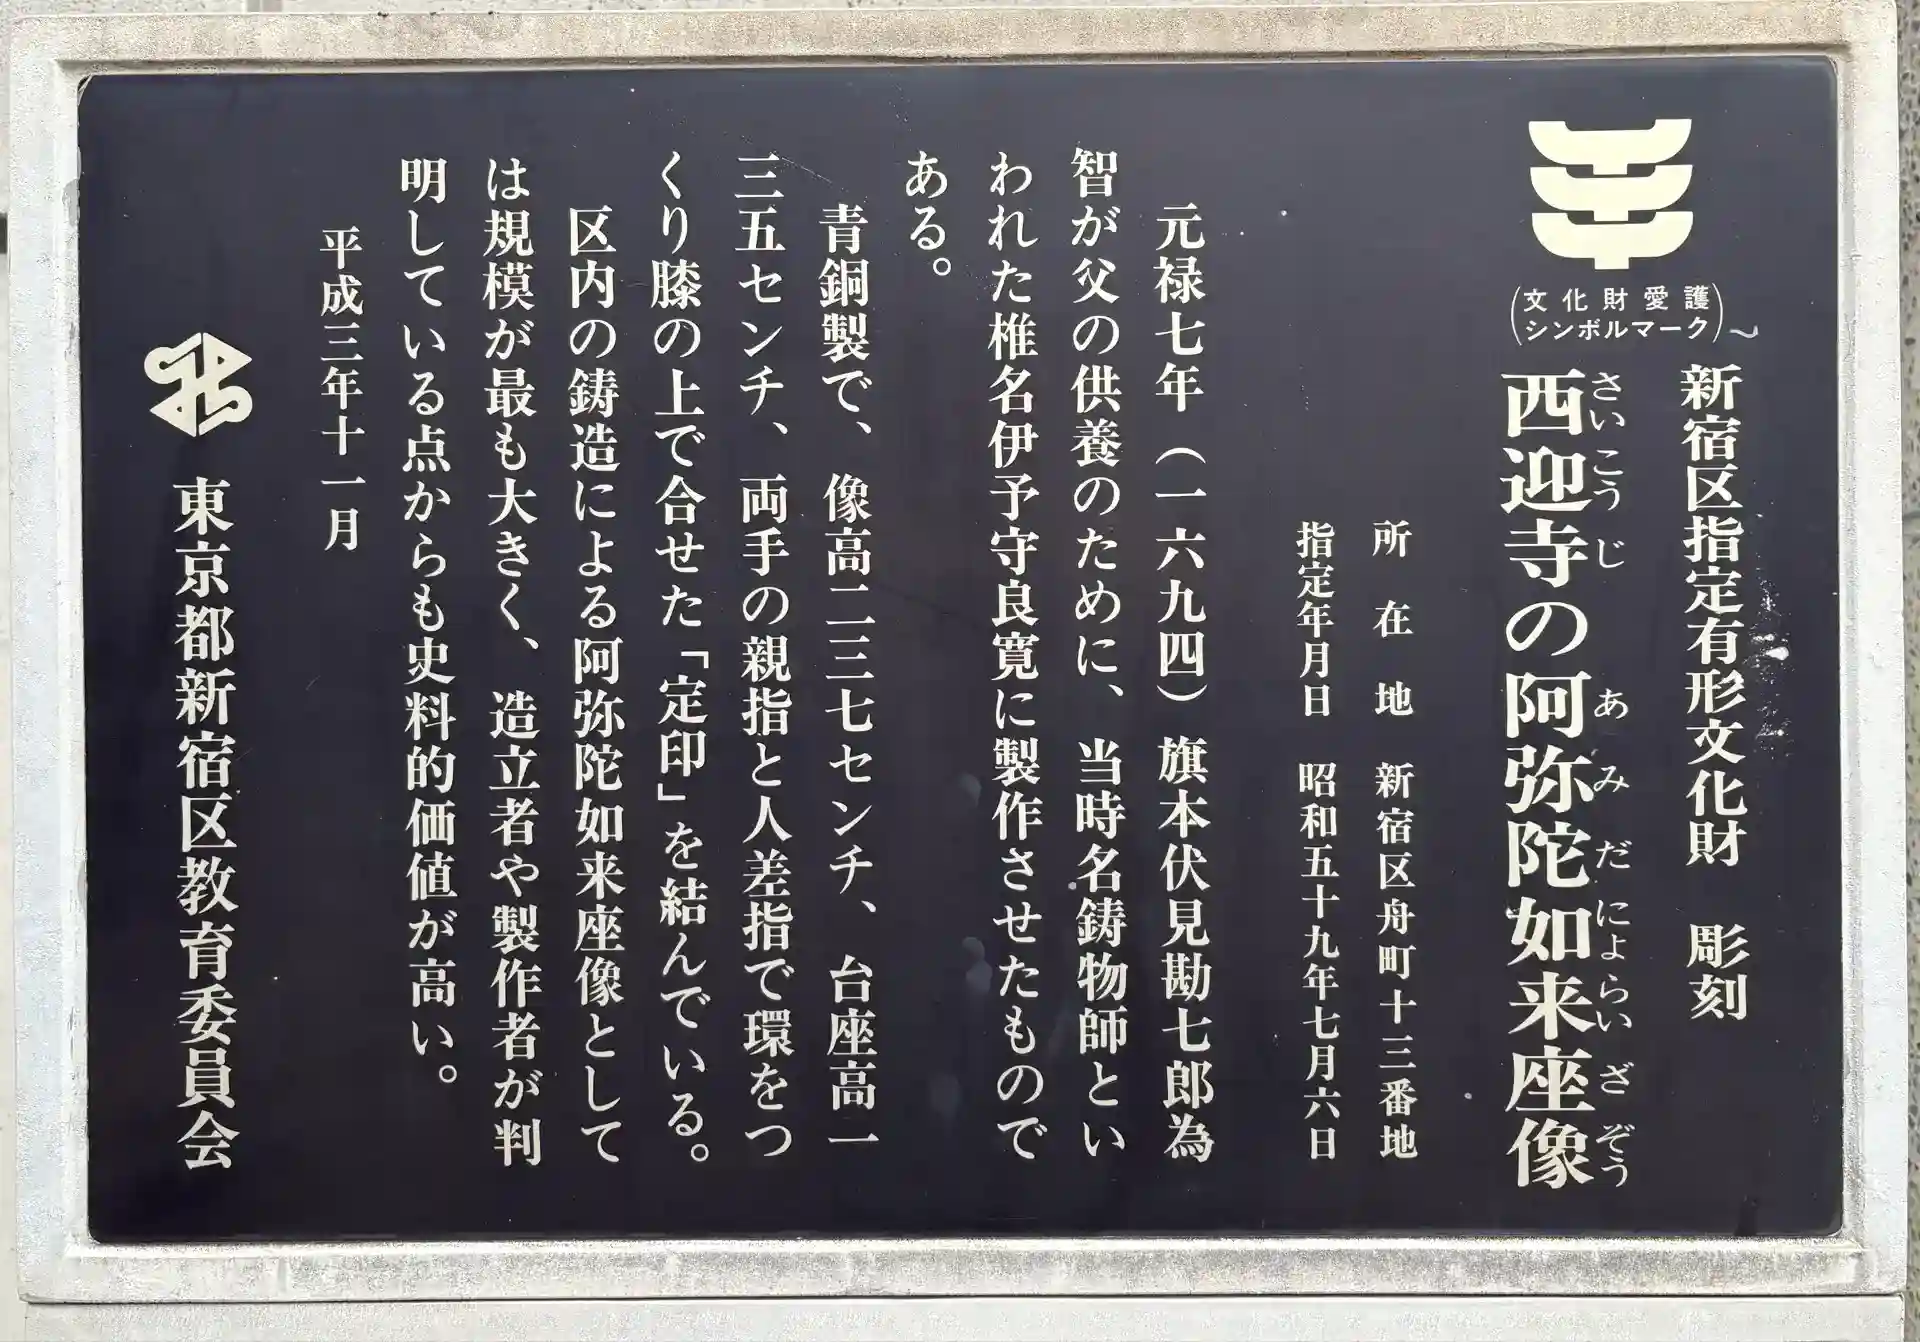 (文化財愛護
シンボルマーク)
新宿区指定有形文化財　彫刻
さいこうじ　あみだにょらいざぞう
西迎寺の阿弥陀如来座像
所在地　新宿区舟町十三番地
指定年月日　昭和五十九年七月六日
元禄七年（一六九四）旗本伏見勘七郎為
智が父の供養のために、当時名鋳物師とい
われた椎名伊予守良寛に製作させたもので
ある。
青銅製で、像高二三七センチ、台座高一
三五センチ、両手の親指と人差指で環をつ
くり膝の上で合せた「定印」を結んでいる。
区内の鋳造による阿弥陀如来座像として
は規模が最も大きく、造立者や製作者が判
明している点からも史料的価値が高い。
平成三年十一月
東京都新宿区教育委員会